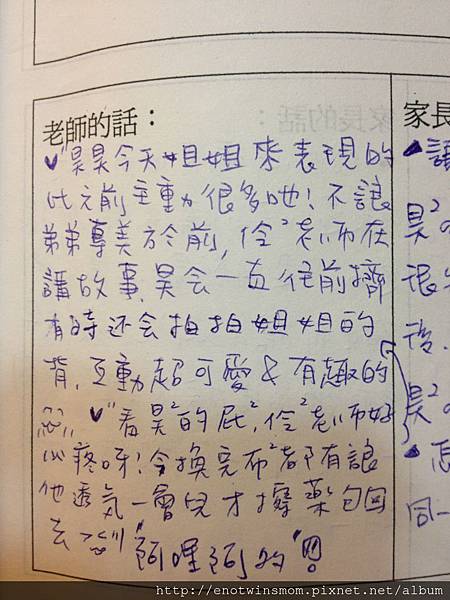 老師的話：
✓"昊昊今天姐姐來表現的
比之前主動很多吔!不讓
弟弟專美於前,伶²老師在
講故事,昊会一直往前擠
有時还会拍拍姐姐的
背,互動超可愛&有趣的
✓"看昊²的屁²,伶²老師好
心疼呀!今換完布²都有讓
他透氣一會兒才擦藥包回
去 "阿哩阿的"!!
家長
▲講
昊²
很
後,
昊²
▲怎
同一
http://enotwinsmom.pixnet.net/album